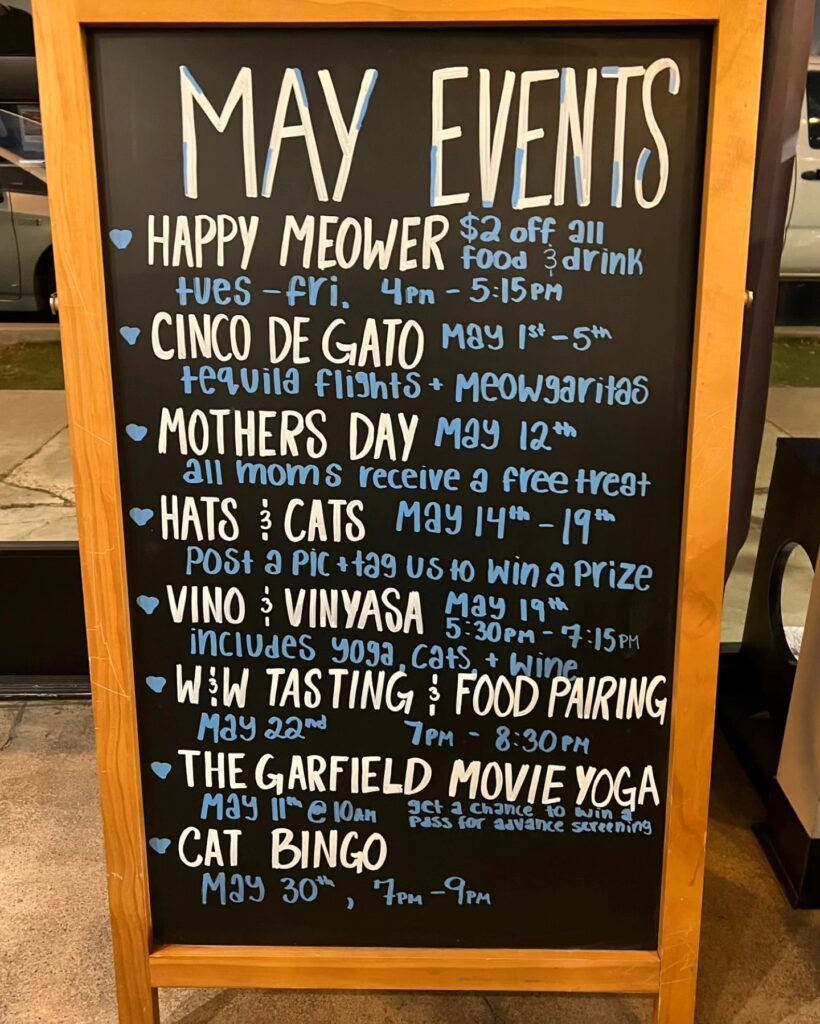 MAY EVENTS
HAPPY MEOWER $2 off all
food & drink
tues - fri. 4pm - 5:15pm
CINCO DE GATO May 1st - 5th
tequila flights + Meowgaritas
MOTHERS DAY May 12th
all moms receive a free treat
HATS & CATS May 14th - 19th
post a pic + tag us to win a prize
VINO & VINYASA May 19th
5:30pm - 7:15pm
includes yoga, cats, + wine
W&W TASTING & FOOD PAIRING
May 22nd 7pm - 8:30pm
THE GARFIELD MOVIE YOGA
May 11th @ 10am get a chance to win a
pass for advance screening
CAT BINGO
May 30th, 7pm - 9pm